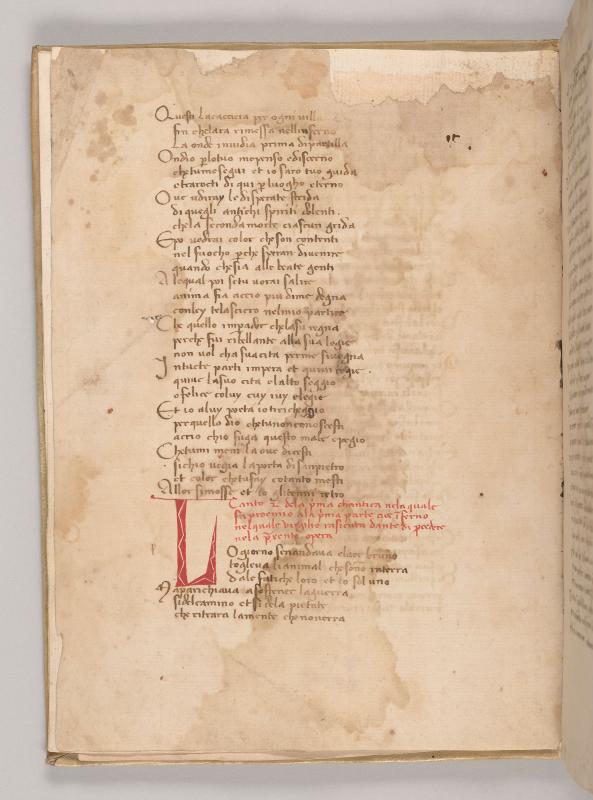 Questi lacaccera per ogni villa
fin chelara rimessa nellinferno
La onde invidia prima dipartilla
Ondio plotuo mepenso ediscerno
chetumesegui et io saro tuo guida
etrarocti di qui pluogho eterno
Ove udiray le disperate strida
di quegli antichi spiriti dolenti
chela seconda morte ciascun grida
Epo vedrai color cheson contenti
nel fuocho pche speran di venire
quando chesia alle beate genti
Alequal poi setu vorai salire
anima fia accio piu dime degna
conley telasciero nelmio partire
Che quello impador chelasu regna
perche fui ribellante alla sua legie
non vol cha sua cita perme sivegna
Intucte parti impera et quivi regie
quivi lasuo cita elalto seggio
o felice coluy cuy ivy elegie
Et io aluy poeta io tirichegio
perquello dio chetunonconoscesti
accio chio fuga questo male epegio
Chetumi meni la ove dicesti
sichio vegia laporta di sanpietro
et color chetufay cotanto mesti
Allor simosse et io glitenni retro
Canto 2 dela pma chantica nela quale
fa proemio ala pma parte cioe iferno
nelquale virgilio rasicura dante di
nela psente opera
LO giorno senandava elaer bruno
toglieva lianimal chesono interra
dale fatiche loro et io sol uno
Maparichiava asostener laguerra
sidelcamino et si dela pietate
che ritrara lamente chenonerra